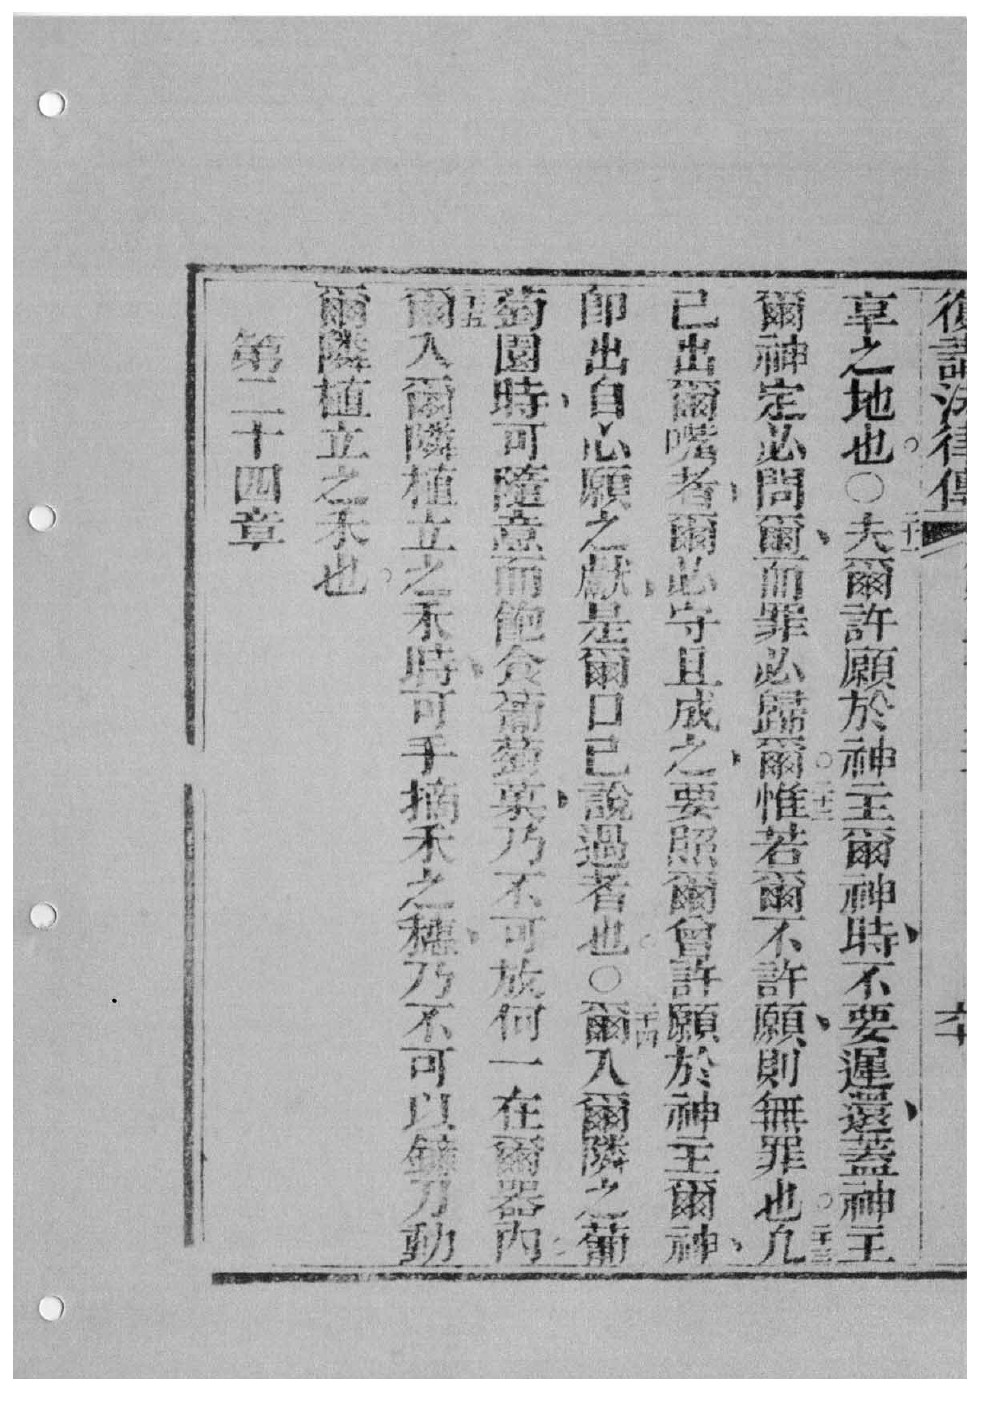 復講法律傳
六十
享之地也。○二十一夫爾許願於神主爾神時、不要遲還、蓋神主
爾神定必問爾、而罪必歸爾。二十二惟若爾不許願、則無罪也。二十三凡
已出爾嘴者、爾必守且成之、要照爾曾許願於神主爾神、
即出自心願之獻、是爾口已說過者也。○二十四爾入爾隣之葡
萄園時、可隨意而飽食葡萄菓、乃不可放何一在爾器內。
二十五爾入爾隣植立之禾時、可手摘禾之穗、乃不可以鐮刀動
爾隣植立之禾也。
第二十四章